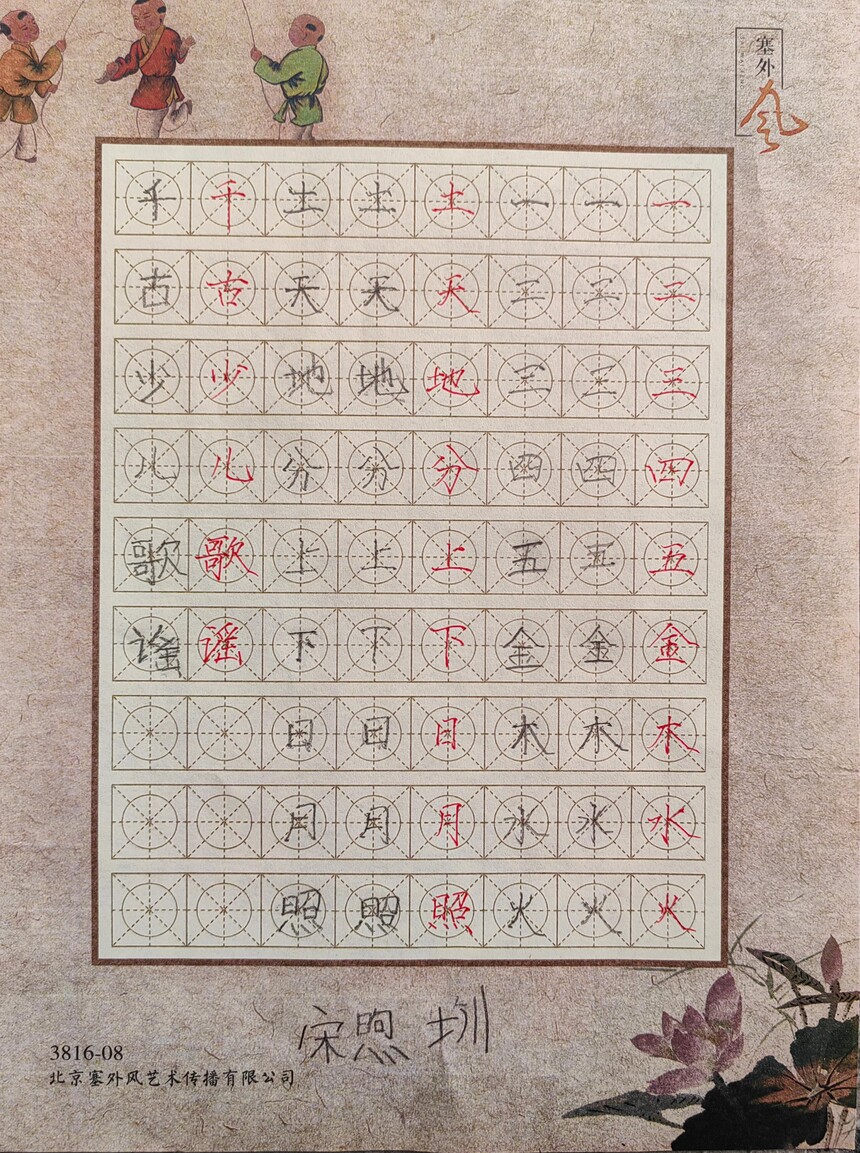 塞外
风
一二三四五金木水火
一二三四五金木水火
一二三四五金木水火
土天地分上下日月照
土天地分上下日月照
土天地分上下日月照
千古少儿歌谣
千古少儿歌谣
宋煦圳
3816-08
北京塞外风艺术传播有限公司